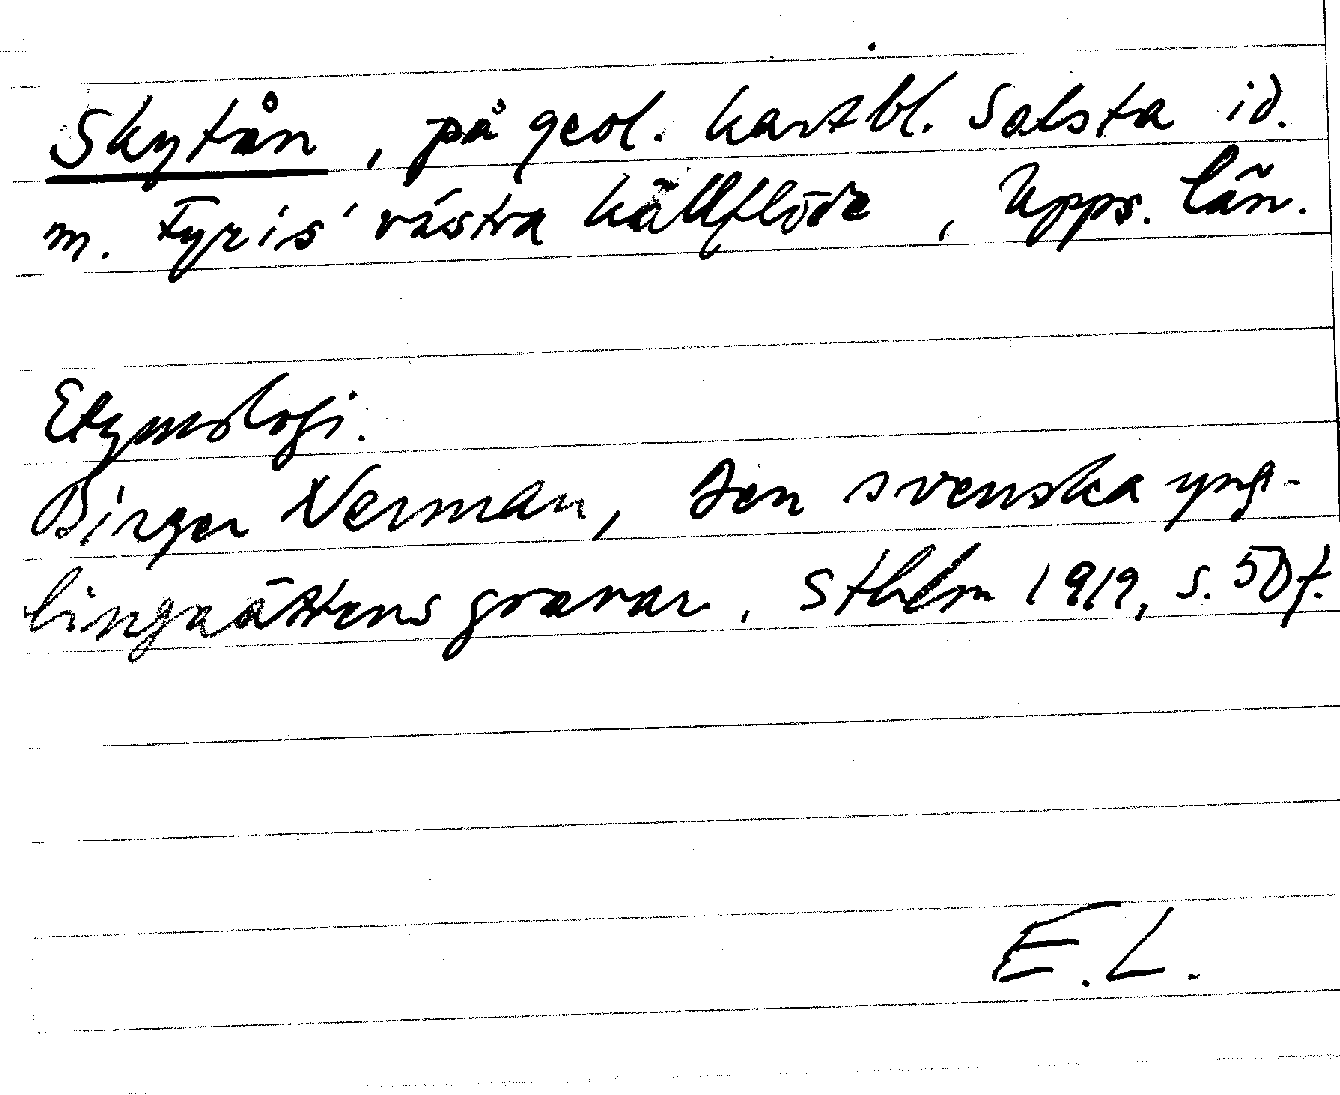 Skytån, på geol. kartbl. Salsta id.
m. Fyris' västra källflöde, Upps. län.
Etymologi.
Birger Nerman, Den svenska yng-
lingaättens gravar. Sthlm 1919, s. 50f.
E.L.